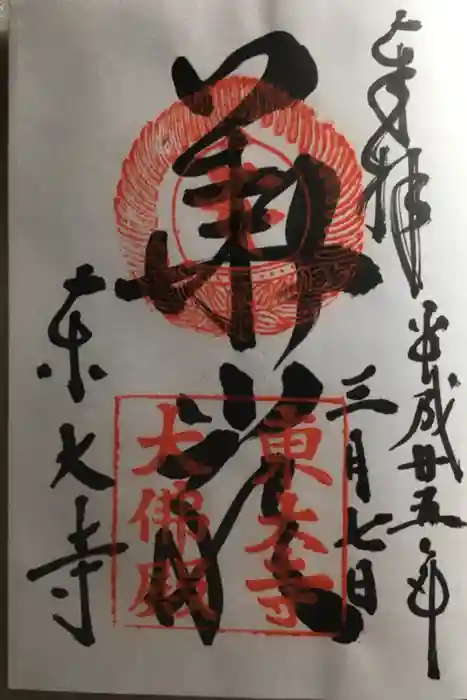 奉拝
平成廿五年
三月七日
華厳
東大寺
大佛殿
東大寺